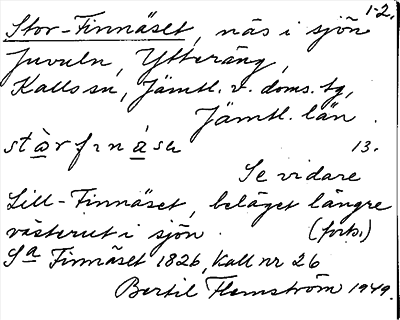 1-2.
Stor-Finnäset, näs i sjön
Juveln, Ytteräng,
Kalls sn, Jämtl. v. doms. tg,
Jämtl. län.
13.
Se vidare
Lill-Finnäset, beläget längre
västerut i sjön. (forts.)
Sa Finnäset 1826, Kall nr 26
Bertil Flemström 1949.